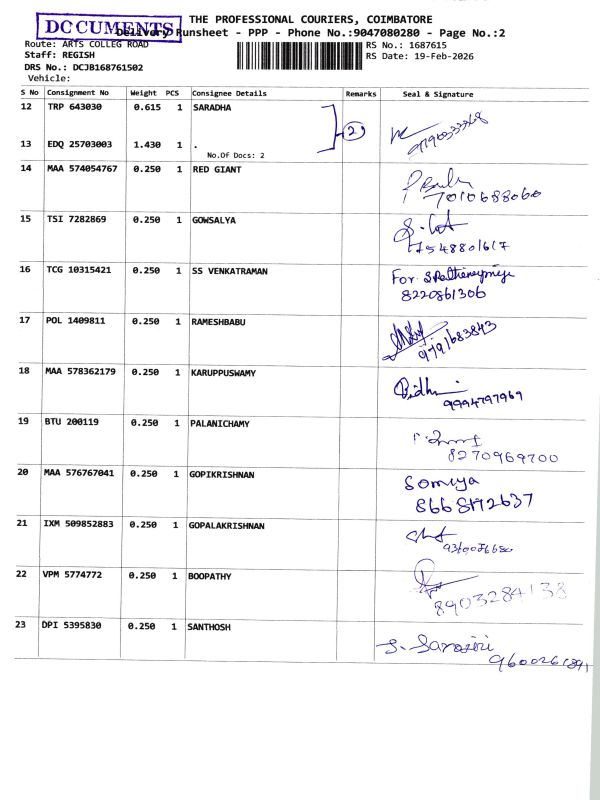 DOCUMENTS
THE PROFESSIONAL COURIERS, COIMBATORE
Delivery Runsheet - PPP - Phone No.:9047080280 - Page No.:2
Route: ARTS COLLEG ROAD
Staff: REGISH
DRS No.: DCJB168761502
Vehicle:
RS No.: 1687615
RS Date: 19-Feb-2026
S No Consignment No Weight PCS Consignee Details Remarks Seal & Signature
12 TRP 643030 0.615 1 SARADHA 2
13 EDQ 25703003 1.430 1 .
No.Of Docs: 2
14 MAA 574054767 0.250 1 RED GIANT
7010688060
15 TSI 7282869 0.250 1 GOWSALYA
7548801617
16 TCG 10315421 0.250 1 SS VENKATRAMAN For
8220861306
17 POL 1409811 0.250 1 RAMESHBABU
9791683843
18 MAA 578362179 0.250 1 KARUPPUSWAMY
9994797969
19 BTU 200119 0.250 1 PALANICHAMY
8270969700
20 MAA 576767041 0.250 1 GOPIKRISHNAN Somiya
21 IXM 509852883 0.250 1 GOPALAKRISHNAN
22 VPM 5774772 0.250 1 BOOPATHY
8903284138
23 DPI 5395830 0.250 1 SANTHOSH
9600261891